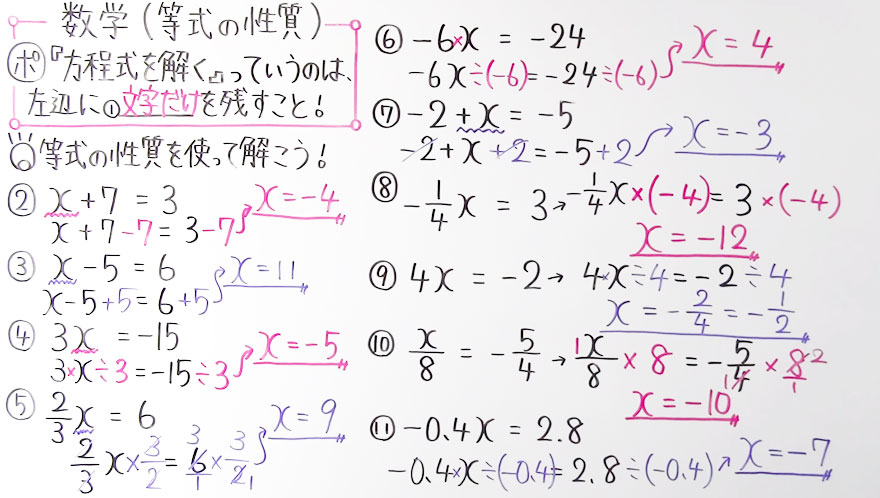 数学(等式の性質)
ポ『方程式を解く』っていうのは、
左辺に①文字だけを残すこと!
等式の性質を使って解こう!
② x + 7 = 3
x + 7 - 7 = 3 - 7
x = -4
③ x - 5 = 6
x - 5 + 5 = 6 + 5
x = 11
④ 3x = -15
3×x÷3 = -15÷3
x = -5
⑤ 2/3 x = 6
2/3 x × 3/2 = 6/1 × 3/2
3
1
x = 9
⑥ -6×x = -24
-6x÷(-6) = -24÷(-6)
x = 4
⑦ -2 + x = -5
-2 + x + 2 = -5 + 2
x = -3
⑧ -1/4 x = 3 → -1/4 x × (-4) = 3 × (-4)
x = -12
⑨ 4x = -2 → 4×x÷4 = -2÷4
x = -2/4 = -1/2
⑩ x/8 = -5/4 → 1x/8 × 8 = -5/4 × 8/1
2
1
x = -10
⑪ -0.4x = 2.8
-0.4×x÷(-0.4) = 2.8÷(-0.4)
x = -7